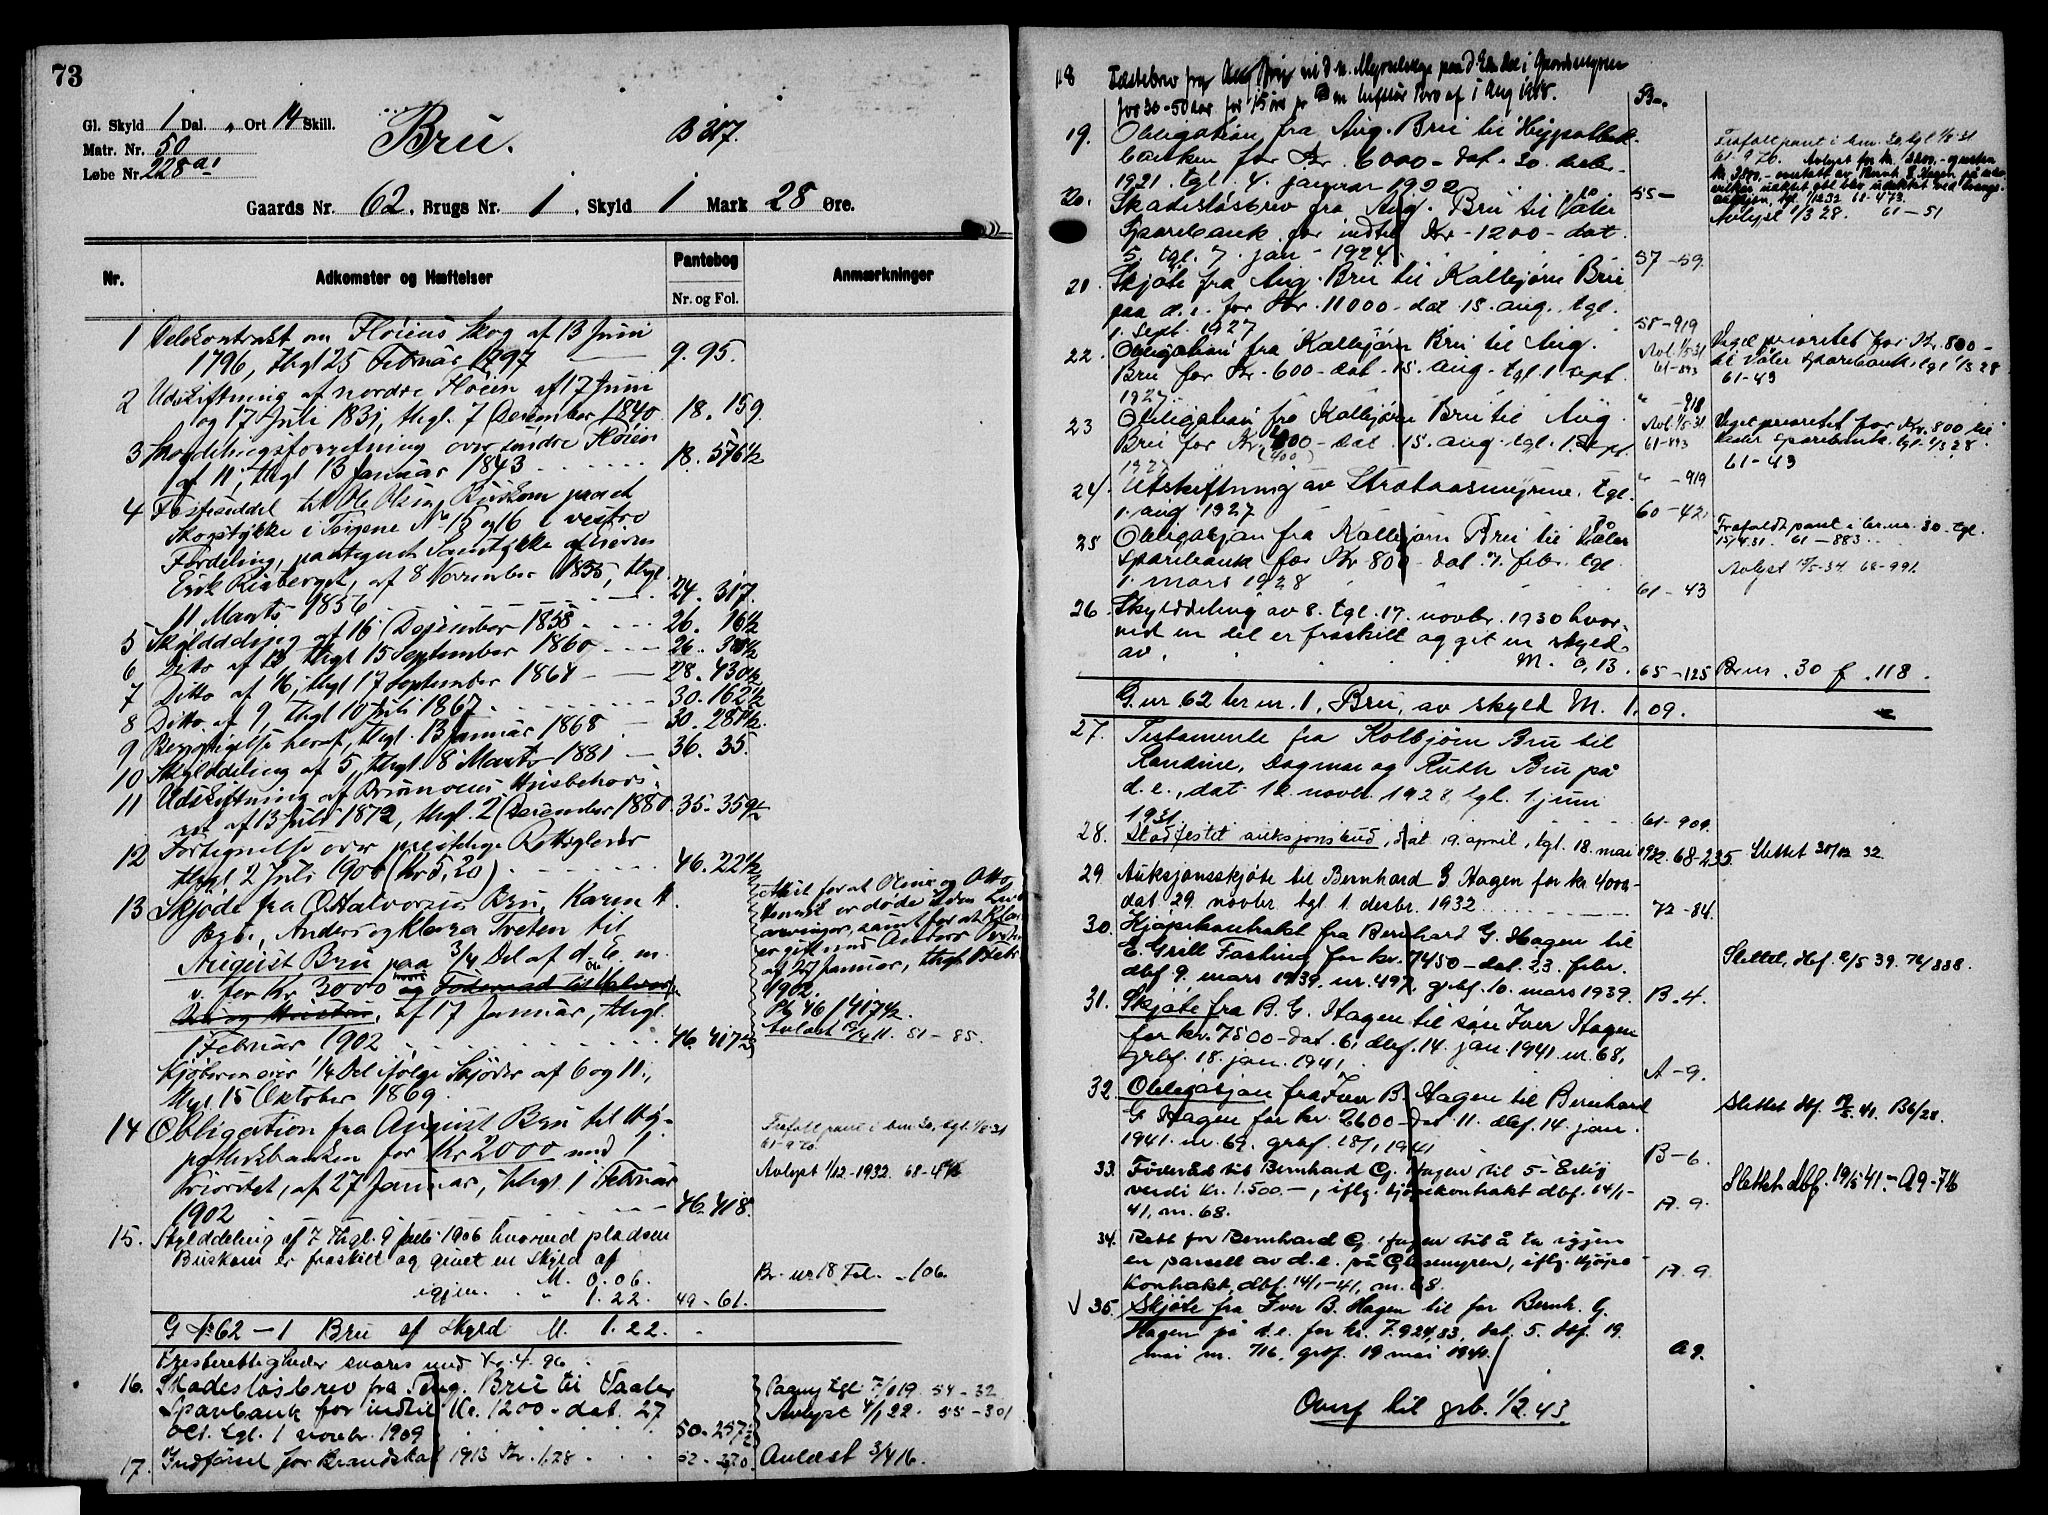 73
Gl. Skyld 1 Dal. „ Ort 14 Skill.
Matr. Nr. 50
Løbe Nr. 228 a1
Bru.
B 317.
Gaards Nr. 62, Brugs Nr. 1, Skyld 1 Mark 28 Øre.
Nr.
Adkomster og Hæftelser
Pantebog
Nr. og Fol.
Anmærkninger
1 Delekontrakt om Fløiens Skog af 13 Juni
1796, thgl 25 Februar 1797 9. 95.
2 Udskiftning af nordre Fløien af 17 Juni
og 17 Juli 1831, thgl. 7 December 1840. 18. 159.
3 Skovdelingsforretning over søndre Fløien
af 11, thgl 13 Januar 1843 18. 576½
4 Festeseddel til Ole Olsen Buskom paa et
Skogstykke i Teigene No 15 og 16 i vestre
Fordeling, pantegnet Samtykke af
Erik Risberget, af 8 November 1855, thgl.
11 Marts 1856 24. 317.
5 Skylddeling af 16 December 1858 26. 16½
6 Ditto af 13 thgl 15 September 1860 26.
7 Ditto af 16, thgl 17 September 1864 28. 430½
8 Ditto af 9, thgl 10 Juli 1867 30. 162½
9 Berigtigelse heraf, thgl. 13 Januar 1868 30. 281½.
10 Skylddeling af 5, thgl. 8 Marts 1881 36. 35.
11 Udskiftning af Husbehov
af 13 Juli 1872, thgl. 2 December 1880. 35. 359½
12 Fortegnelse over prestelige Rettigheder
thgl 2 Juli 1900 (Kr 5,20) 46. 22½
13 Skjøde fra O. Halvorsen Bru, Karen H.
Anders og Klara Tveten til
August Bru paa 3/4 Del af d. E. m.
v. for Kr 3000 og Føderaad til Halvor
og Hustru, af 17 Januar, thgl.
1 Februar 1902 46. 417½
Attest for at Oline og Otto
er døde uden Livs-
arvinger, samt for at Klara
er gift med Anders Tveten
af 27 Januar, thgl 1 Febr
1902.
Pb 46 / 417½
Avlæst 51 – 85.
Kjøberen eier 1/4 Del ifølge Skjøder af 6 og 11,
thgl 15 Oktober 1869.
14 Obligation fra August Bru til Hy-
pothekbanken for Kr 2000 med 1
Prioritet, af 27 Januar, thgl 1 Februar
1902 46. 418.
Frafalt pant i brn 30, tgl.
Avlyst 1/12-1932. 68-
15. Skylddeling af 7 thgl. 9 1906 hvorved pladsen
Buskom er fraskilt og givet en Skyld af
M. 0.06.
igjen „ 1.22. 49 – 61.
Br. nr 18 Fol. – 106.
G No 62 – 1 Bru af Skyld M. 1.22.
Presterettigheder svares med Kr. 4.96
16. Skadesløsbrev fra Aug. Bru til Vaaler
Sparebank for indtil Kr. 1200 – dat. 27
oct. tgl. 1 novebr. 1909 50 – 257½
Paany tgl 54 – 32
Avlyst 4/1 22. 55 – 301
17. Indførsel for Brandskat 1913 Kr. 1.28 52 – 270.
Avlæst 3/4 16.
18 Fæstebrev fra Aug Bru til
for 30–50 aar for 15 øre pr af 1 Aug 1918.
19. Obligation fra Aug. Bru til Hypothek-
banken for Kr. 6000 – dat. 30. debr.
1921. tgl. 4. januar 1922 55 –
Frafalt pant i brn. 30, tgl 1/8 31.
20. Skadesløsbrev fra Aug. Bru til Våler
Sparebank for indtil Kr – 1200 – dat.
5. tgl. 7. jan – 1924. 57 – 59.
Avlyst 1/3 28. 61 – 51
21. Skjøte fra Aug. Bru til Kolbjørn Bru
paa d. e. for Kr. 11000 – dat 15. aug. tgl.
1. Sept. 1927 58 – 919
22. Obligation fra Kolbjørn Bru til Aug.
Bru for Kr. 600 – dat. 15. aug. tgl. 1. sept.
1927. „ – 918
Avl. 1/5 31.
61-893
Veget prioritet for Kr. 800 –
til Våler Sparebank, tgl 1/3 28
61-43
23 Obligation fra Kolbjørn Bru til Aug.
Bru for Kr. 400 – dat. 15. aug. tgl. 1. Sept.
1927 (400) „ – 919
Avl. 1/5 31.
61-893
Veget prioritet for Kr. 800 til
Vaaler Sparebank. tgl. 1/3 28.
61-43
24. Utskiftning av Straataasmyrene. tgl.
1. aug 1927 60 – 42.
25 Obligasjon fra Kolbjørn Bru til Våler
Sparebank for Kr 800 – dat. 7. febr. tgl.
1. mars 1928 61 – 43
Frafaldt pant i br.nr. 30. tgl.
15/4.31. 61 – 883.
Avlyst 68-991.
26. Skylddeling av 8. tgl. 17. novbr. 1930 hvor-
ved en del er fraskilt og git en skyld
av. M. 0,13. 65 – 125
Br nr. 30 f. 118.
G. nr 62 br nr. 1. Bru, av skyld M. 1.09.
27. Testamente fra Kolbjørn Bru til
Randine, Dagmar og Ruth Bru på
d. e., dat. 12. novbr. 1928, tgl. 1 juni
1931. 61-909.
28. Stadfestet auksjonsbud, dat 19. april, tgl. 18. mai 1932. 68-235.
Slettet 30/12 32.
29 Auksjonsskjøte til Bernhard G Hagen for kr. 4000 –
dat. 29. novbr. tgl. 1. desbr. 1932 72 – 84.
30. Kjøpekontrakt fra Bernhard G. Hagen til
E. Grill Fasting for kr. 7450 – dat. 23. febr.
dbf. 9. mars 1939. nr. 497, grbf. 10. mars 1939. B. 4.
Slettet, dbf. 2/5 39. 72/338.
31. Skjøte fra B. G. Hagen til søn Iver Hagen
for kr. 7500 – dat. 6. dbf. 14. jan. 1941 nr. 68,
grbf. 18. jan. 1941. A – 9.
32. Obligasjon fra Iver B. Hagen til Bernhard
G. Hagen for kr. 2600 – dat. 11. dbf. 14. jan.
1941. nr. 69. grbf. 18/1 1941 B – 6.
Slettet dbf. 19/5. 41. B6/28.
33. Føderåd til Bernhard G. Hagen til 5-årlig
verdi kr. 1.500. –, iflg. kjøpekontrakt dbf. 14/1-
41, nr. 68. A. 9.
Slettet dbf. 19/5 41. – A9-716
34. Rett for Bernhard G. Hagen til å ta igjen
en parsell av d. e. på Glesmyren, iflg. kjøpe-
kontrakt, dbf. 14/1-41, nr. 68. A. 9.
√ 35. Skjøte fra Iver B. Hagen til far Bernh. G.
Hagen på d.e. for kr. 7.924,83, dat. 5. dbf. 19.
mai nr. 716, grbf. 19 mai 1941. A 9.
Overf. til grb. 1/2 43.